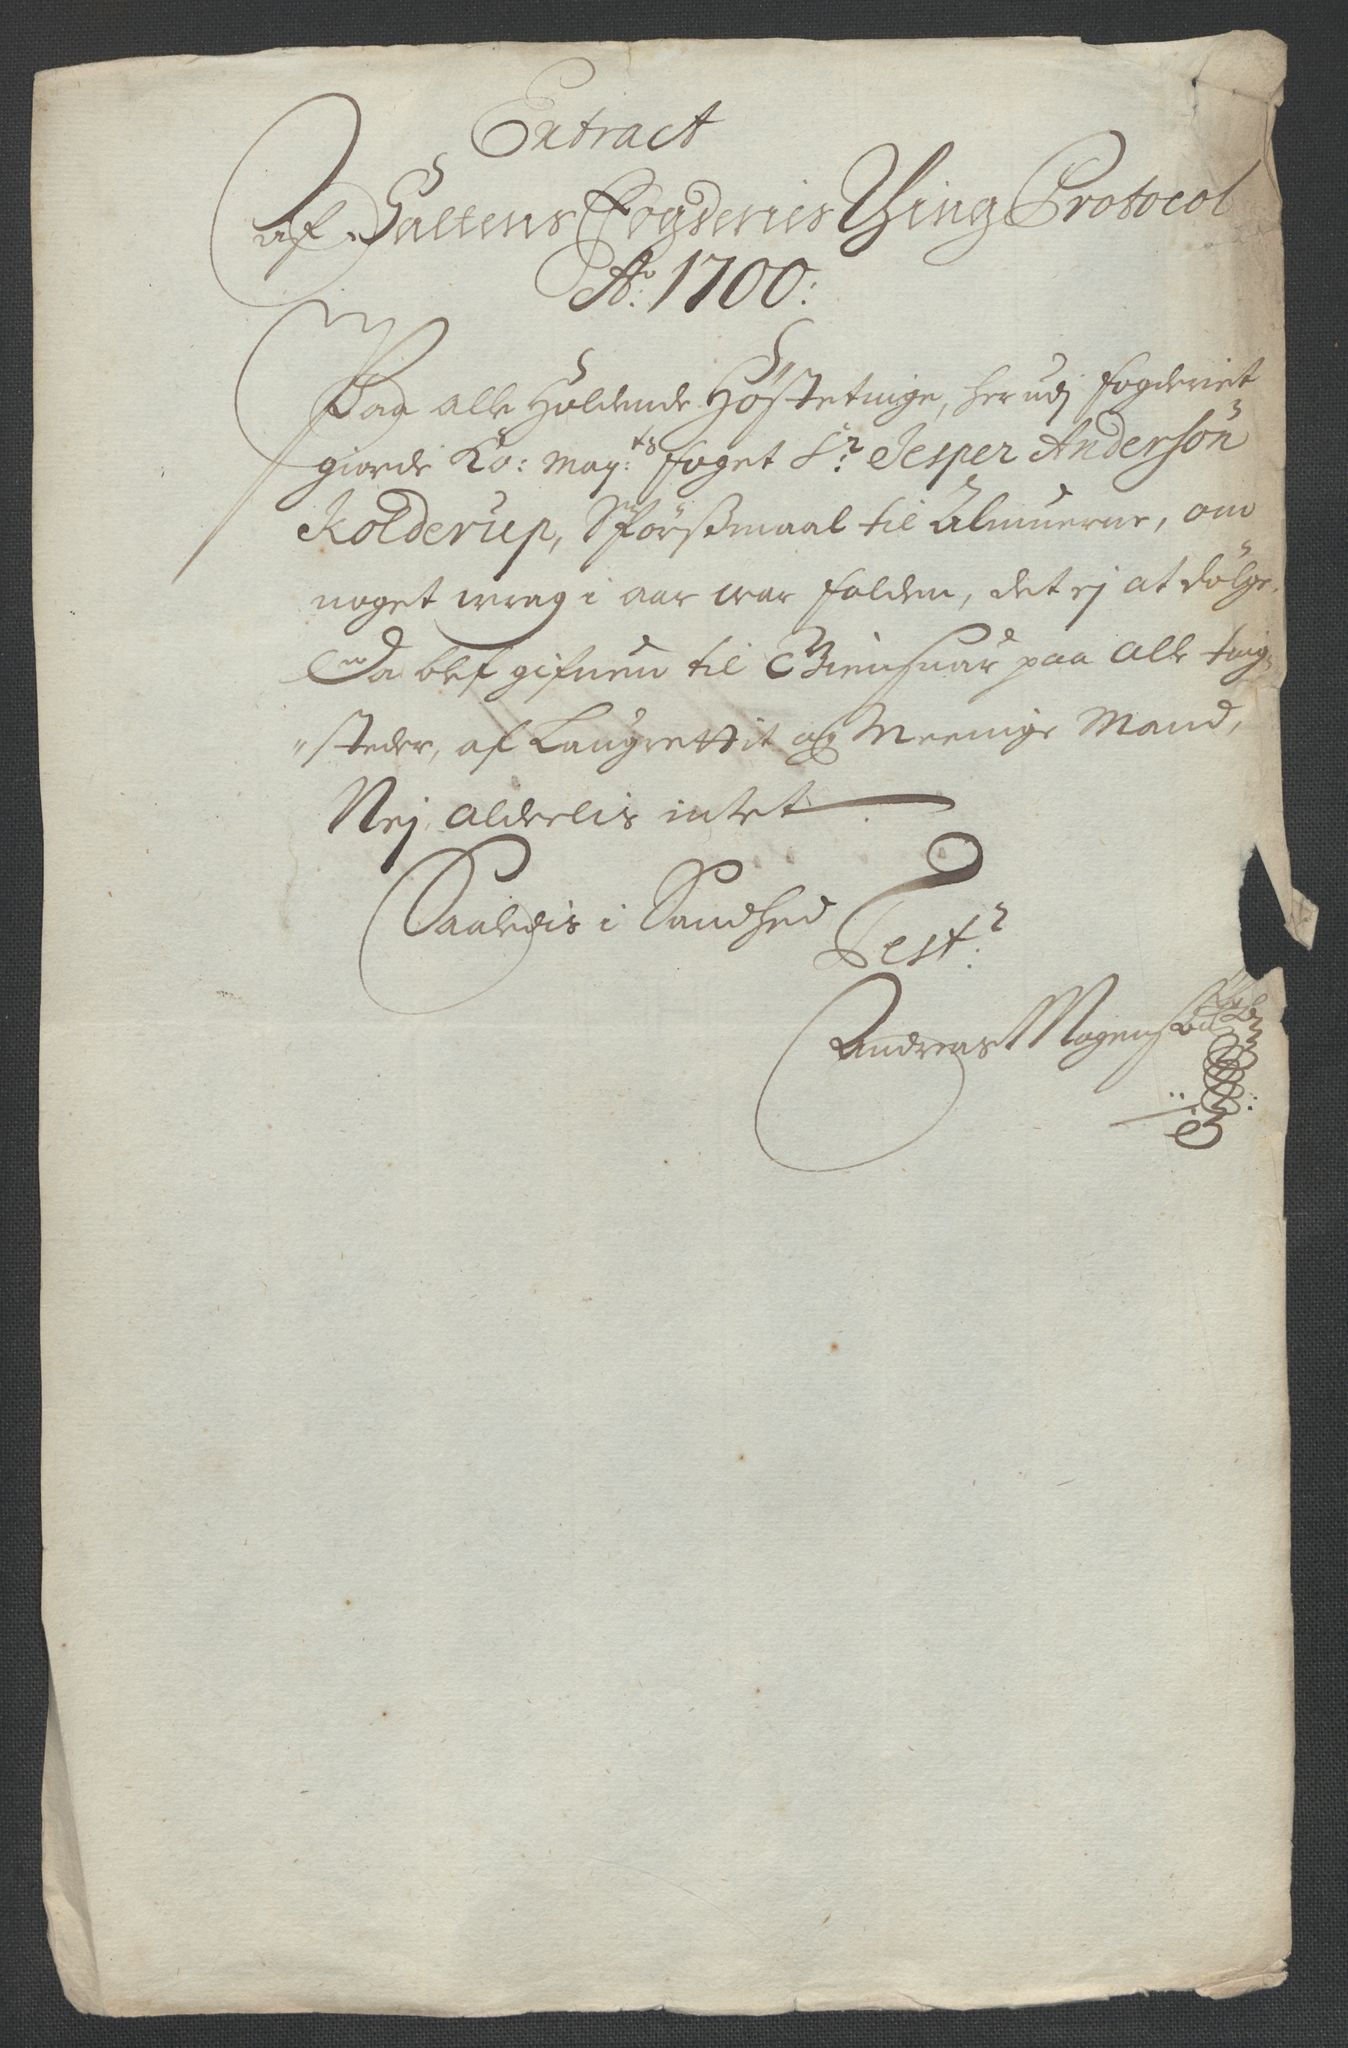 Extract
af Saltens Fogderies Thing Protocol
Ao. 1700:
Paa alle Holdende Höstetinge, her udj fogderiet
giorde Ko: May:ts foget Sr. Jesper Andersön
Kolderup, Spörßmaal til Almuerne, om
noget wrag i aar war falden, det ej at dölge.
Da blef gifuen til Giensuar paa alle ting
"steder, af Laugrettit og Meenige Mand,
Nej alderlis intet
Saaledis i Sandhed Test.r
Andreas Mogensen